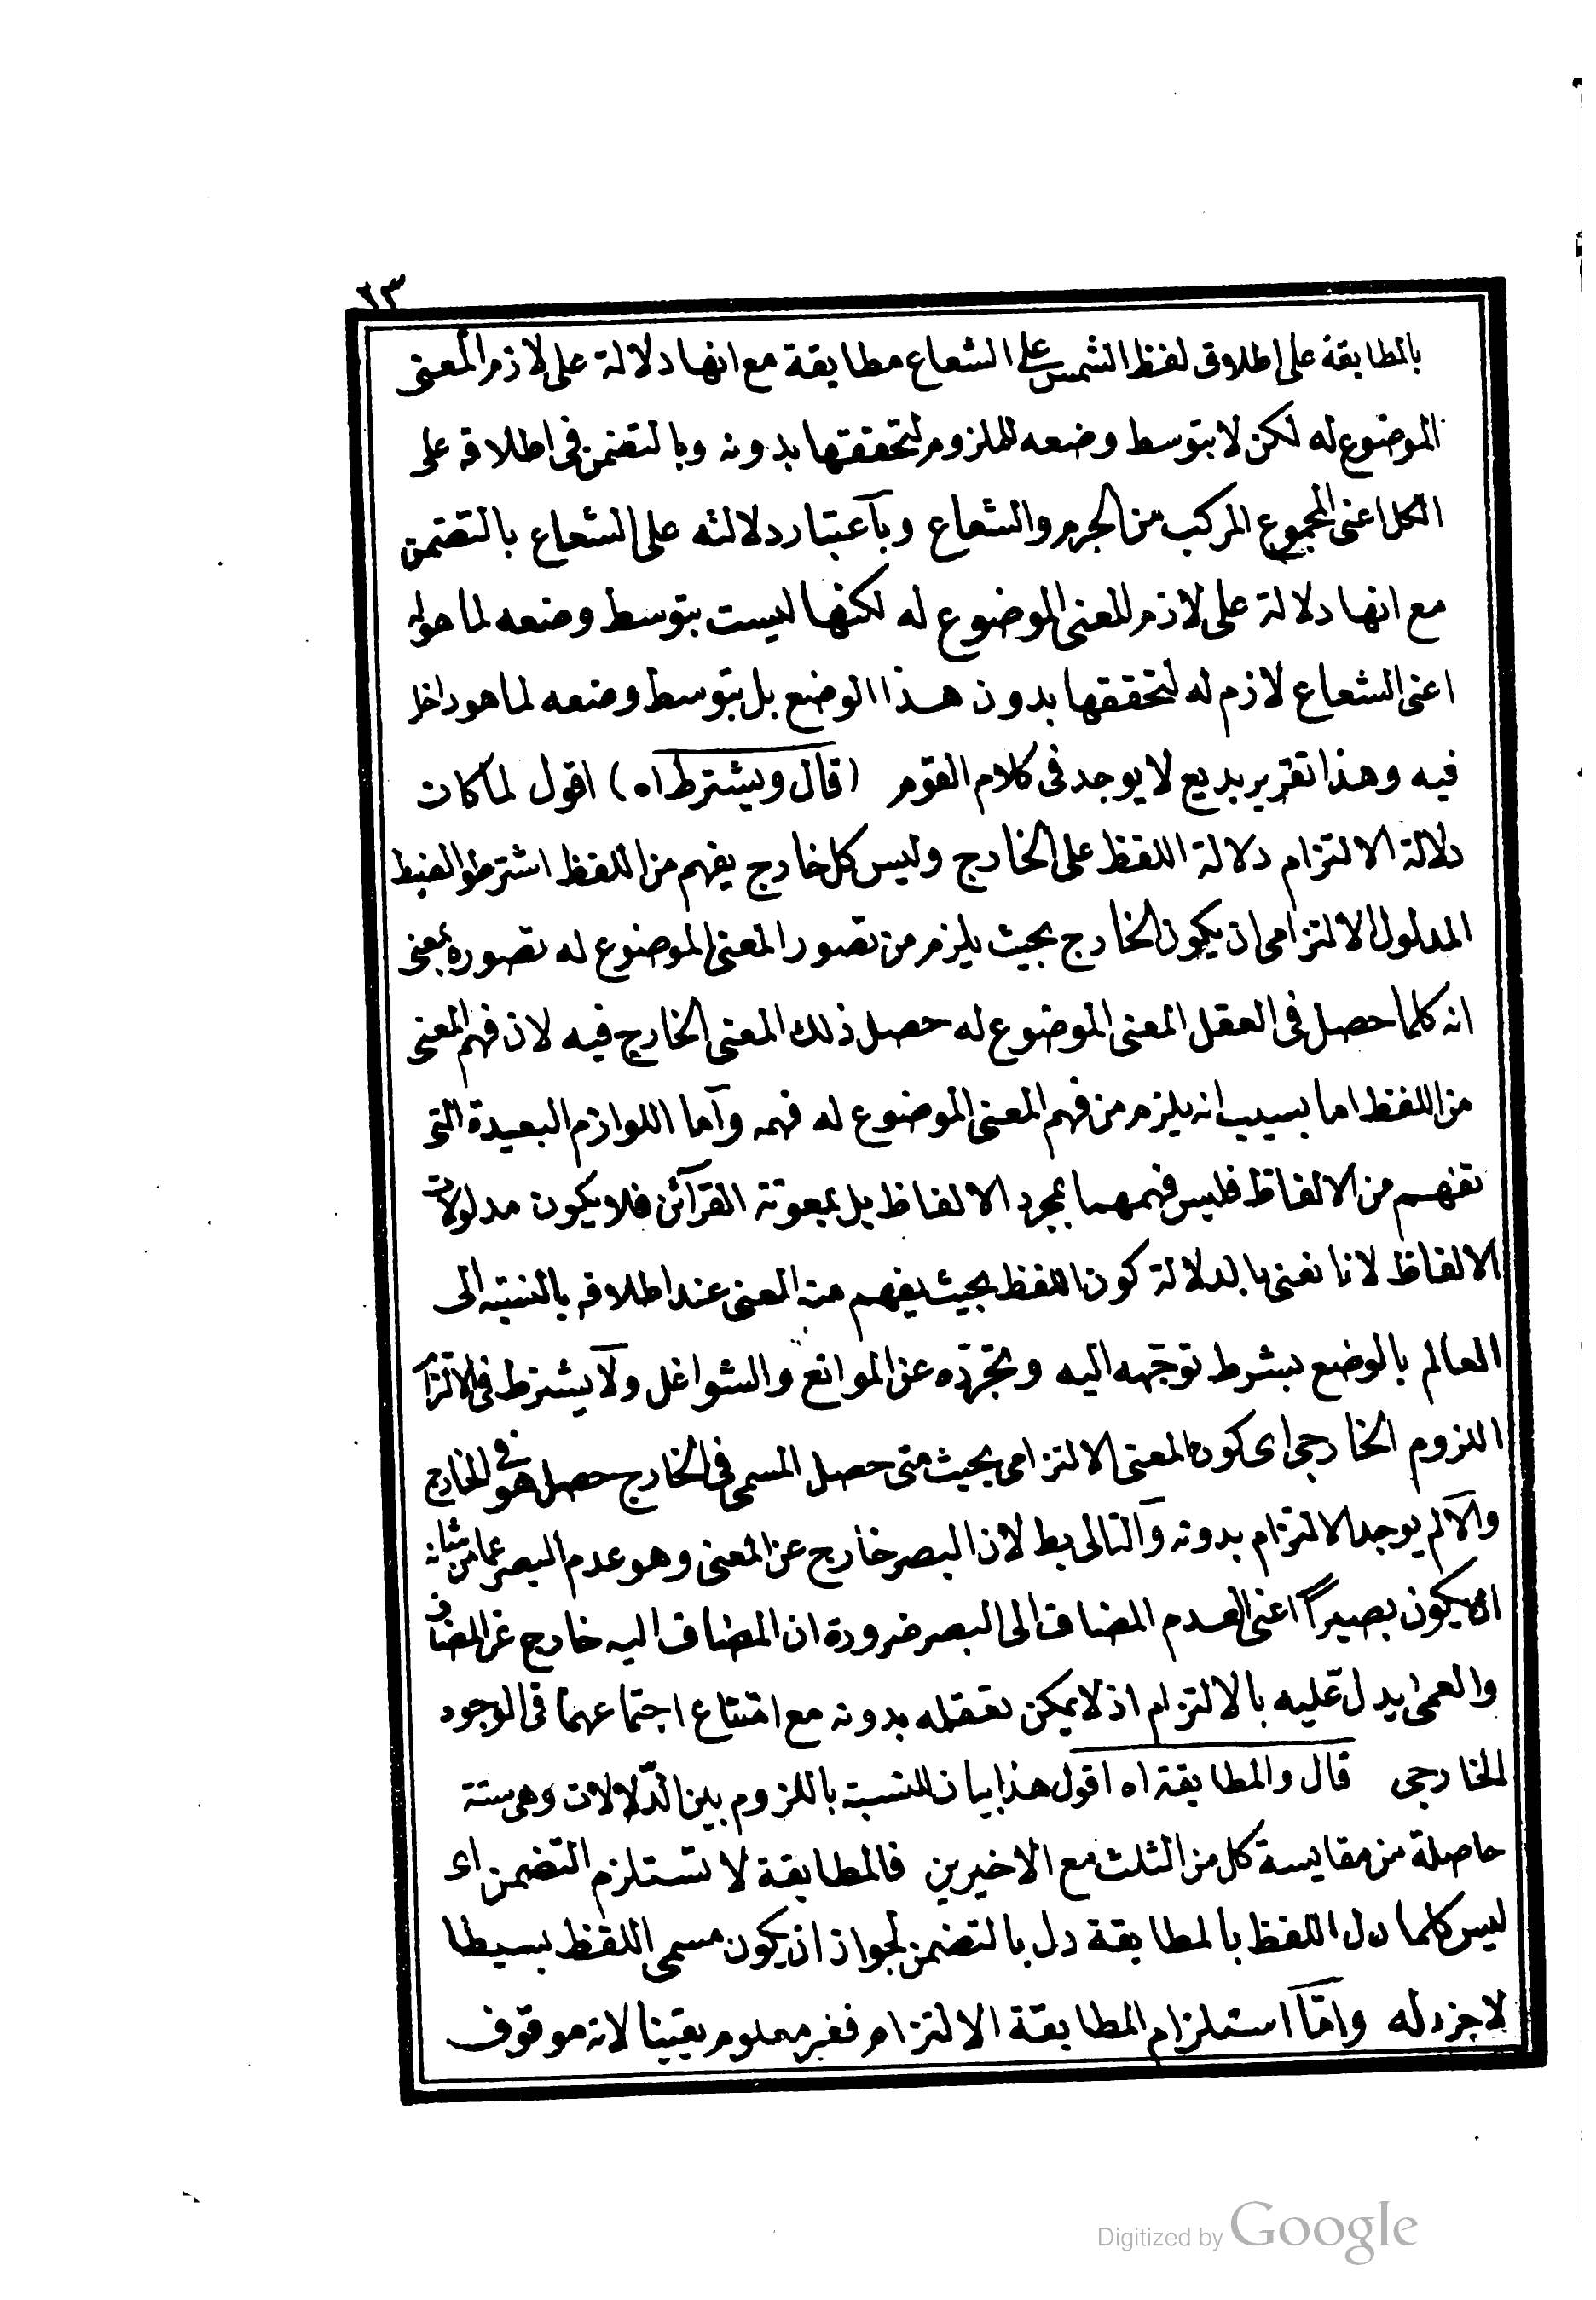 ٢٣
بالمطابقة على اطلاق لفظ الشمس على الشعاع مطابقة مع انها دلالة على لازم المعنى
الموضوع له لكن لا بتوسط وضعه للملزوم لتحققها بدونه وبالتضمن فى اطلاقه على
الكل اعنى المجموع المركب من الجرم والشعاع وباعتبار دلالته على الشعاع بالتضمن
مع انها دلالة على لازم المعنى الموضوع له لكنها ليست بتوسط وضعه لما هو له
اعنى الشعاع لازم له لتحققها بدون هذا الوضع بل بتوسط وضعه لما هو داخل
فيه وهذا تقرير بديع لا يوجد فى كلام القوم (قال ويشترط اه) اقول لما كانت
دلالة الالتزام دلالة اللفظ على الخارج وليس كل خارج يفهم من اللفظ اشترطوا لضبط
المدلول الالتزامى ان يكون الخارج بحيث يلزم من تصور المعنى الموضوع له تصوره بمعنى
انه كلما حصل فى العقل المعنى الموضوع له حصل ذلك المعنى الخارج فيه لان فهم المعنى
من اللفظ اما بسبب انه يلزم من فهم المعنى الموضوع له فهمه وآما اللوازم البعيدة التى
تفهم من الالفاظ فليس فهمها بمجرد الالفاظ بل بمعونة القرآئن فلا يكون مدلولات
الالفاظ لانا نعنى بالدلالة كون اللفظ بحيث يفهم منه المعنى عند اطلاقه بالنسبة الى
العالم بالوضع بشرط توجّهه اليه وتجرّده عن الموانع والشواغل ولآ يشترط فى الالتزام
اللزوم الخارجى اى كون المعنى الالتزامى بحيث متى حصل المسمى فى الخارج حصل هو فى الخارج
والآ لم يوجد الالتزام بدونه وآلتالى بط لان البصر خارج عن المعنى وهو عدم البصر عما من شانه
ان يكون بصيراً اعنى العدم المضاف الى البصر ضرورة ان المضاف اليه خارج عن المضاف
والعمى يدل عليه بالالتزام اذ لا يمكن تعقله بدونه مع امتناع اجتماعهما فى الوجود
الخارجى قال والمطابقة اه اقول هذا بيان للنسبة باللزوم بين الدّلالات وهى ستة
حاصلة من مقايسة كل من الثلث مع الاخيرين فالمطابقة لا تستلزم التضمن اى
ليس كلما دل اللفظ بالمطابقة دل بالتضمن لجواز ان يكون مسمى اللفظ بسيطا
لا جزء له وامّا استلزام المطابقة الالتزام فغير معلوم يقينا لانه موقوف
Digitized by Google